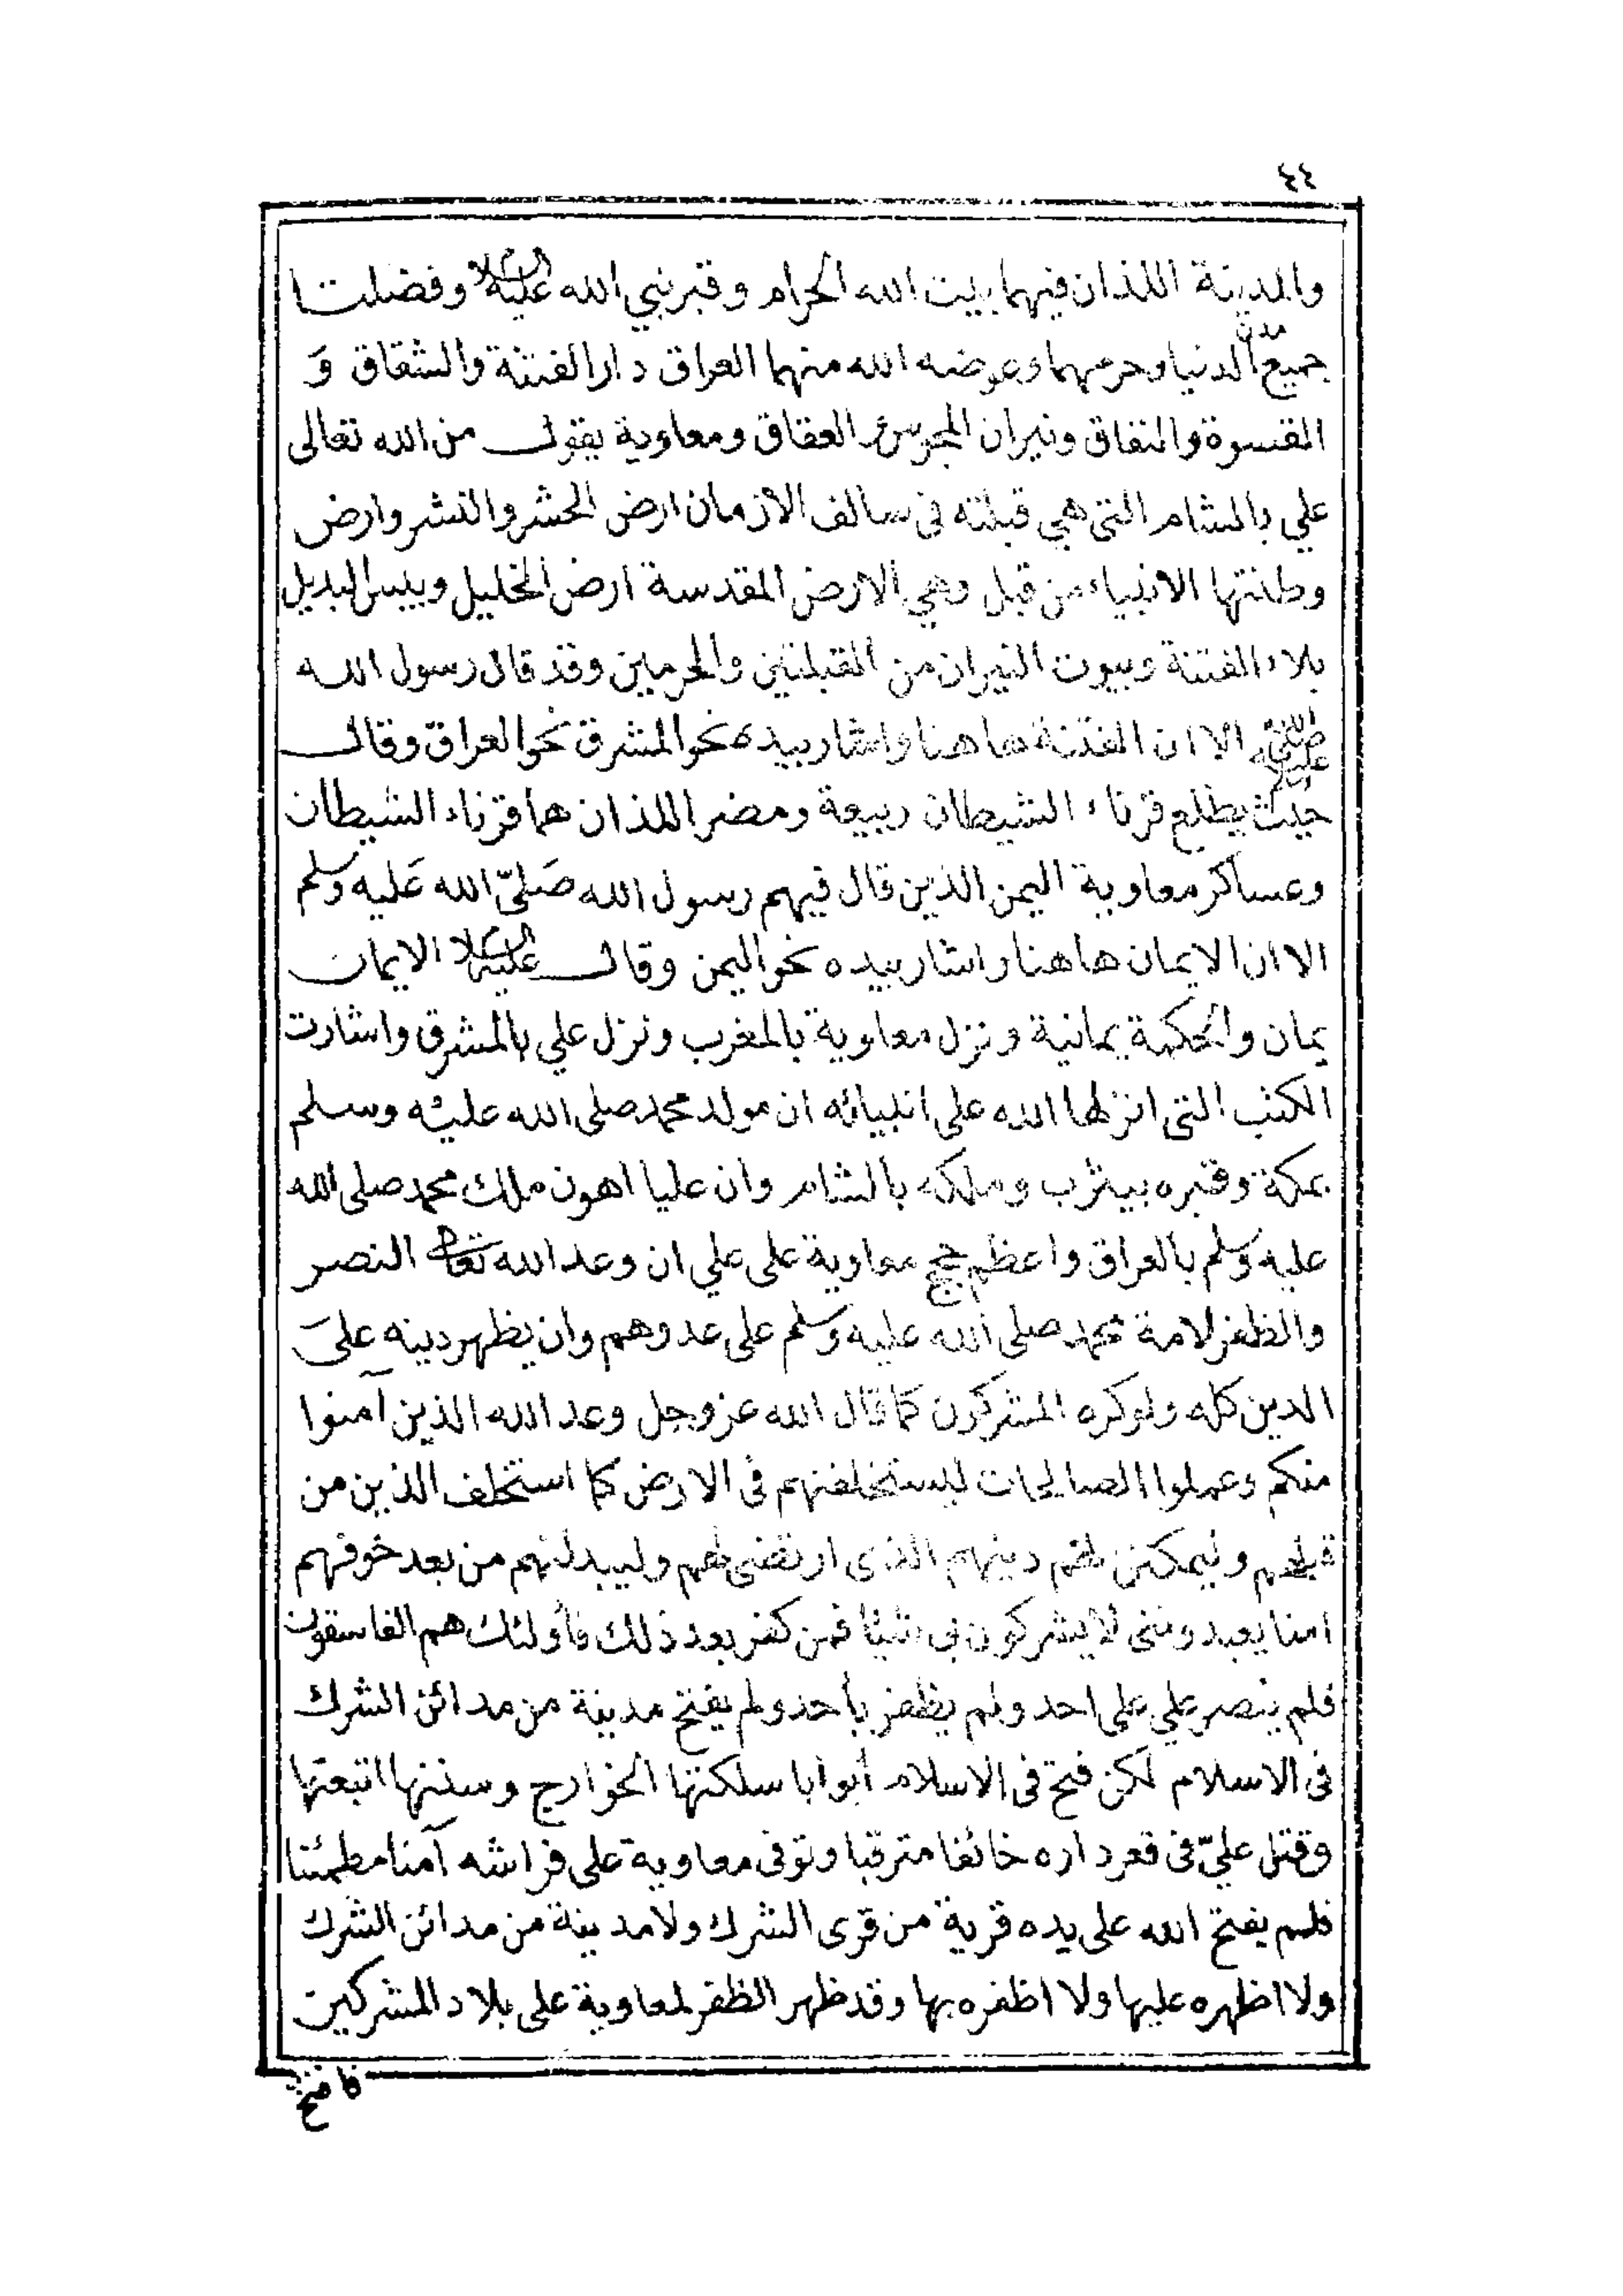 ٤٤
والمدينة اللذان فيهما بيت الله الحرام وقبر نبي الله عليه السلام وفضلت
جميع مدن الدنيا وحرمهما وعوضه الله منهما العراق دار الفتنة والشقاق وَ
القسوة والنفاق ونيران المجوس العقاق ومعاوية يقول من الله تعالى
علي بالشام التى هي قبلته فى سالف الازمان ارض الحشر والنشر وارض
وطنتها الانبياء من قبل وهي الارض المقدسة ارض الخليل وبيس البديل
بلاد الفتنة وبيوت النيران من القبلتين والحرمين وقد قال رسول الله
صلى الله عليه الا ان الفتنة هاهنا واشار بيده نحو المشرق نحو العراق وقال
حيث يطلع قرناء الشيطان ربيعة ومضر اللذان هما قرناء الشيطان
وعساكر معاوية اليمن الذين قال فيهم رسول الله صَلىّ الله عَليه وسلم
الا ان الايمان هاهنا واشار بيده نحو اليمن وقال عليه السلام الايمان
يمان والحكمة يمانية ونزل معاوية بالمغرب ونزل علي بالمشرق واشارت
الكتب التى انزلها الله على انبيائه ان مولد محمد صلى الله عليه وسلم
بمكة وقبره بيثرب وملكه بالشام وان عليا اهون ملك محمد صلى الله
عليه وسلم بالعراق واعظم حجج معاوية على علي ان وعد الله تعالى النصر
والظفر لامة محمد صلى الله عليه وسلم على عدوهم وان يظهر دينه علىَ
الدين كله ولوكره المشركون كما قال الله عز وجل وعد الله الذين آمنوا
منكم وعملوا الصالحات ليستخلفنهم فى الارض كما استخلف الذين من
قبلهم وليمكنن لهم دينهم الذى ارتضى لهم وليبدلنهم من بعد خوفهم
امنا يعبدوننى لا يشركون بى شيئا فمن كفر بعد ذلك فأولئك هم الفاسقون
فلم ينصر علي على احد ولم يظفر بأحد ولم يفتح مدينة من مدائن الشرك
فى الاسلام لكن فتح فى الاسلام أبوابا سلكتها الخوارج وسننها اتبعتها
وقتل عليّ فى قعر داره خائفا مترقبا وتوفى معاوية على فراشه آمنا مطمئنا
فلم يفتح الله على يده قرية من قرى الشرك ولا مدينة من مدائن الشرك
ولا اظهره عليها ولا اظفره بها وقد ظهر الظفر لمعاوية على بلاد المشركين
فافتح